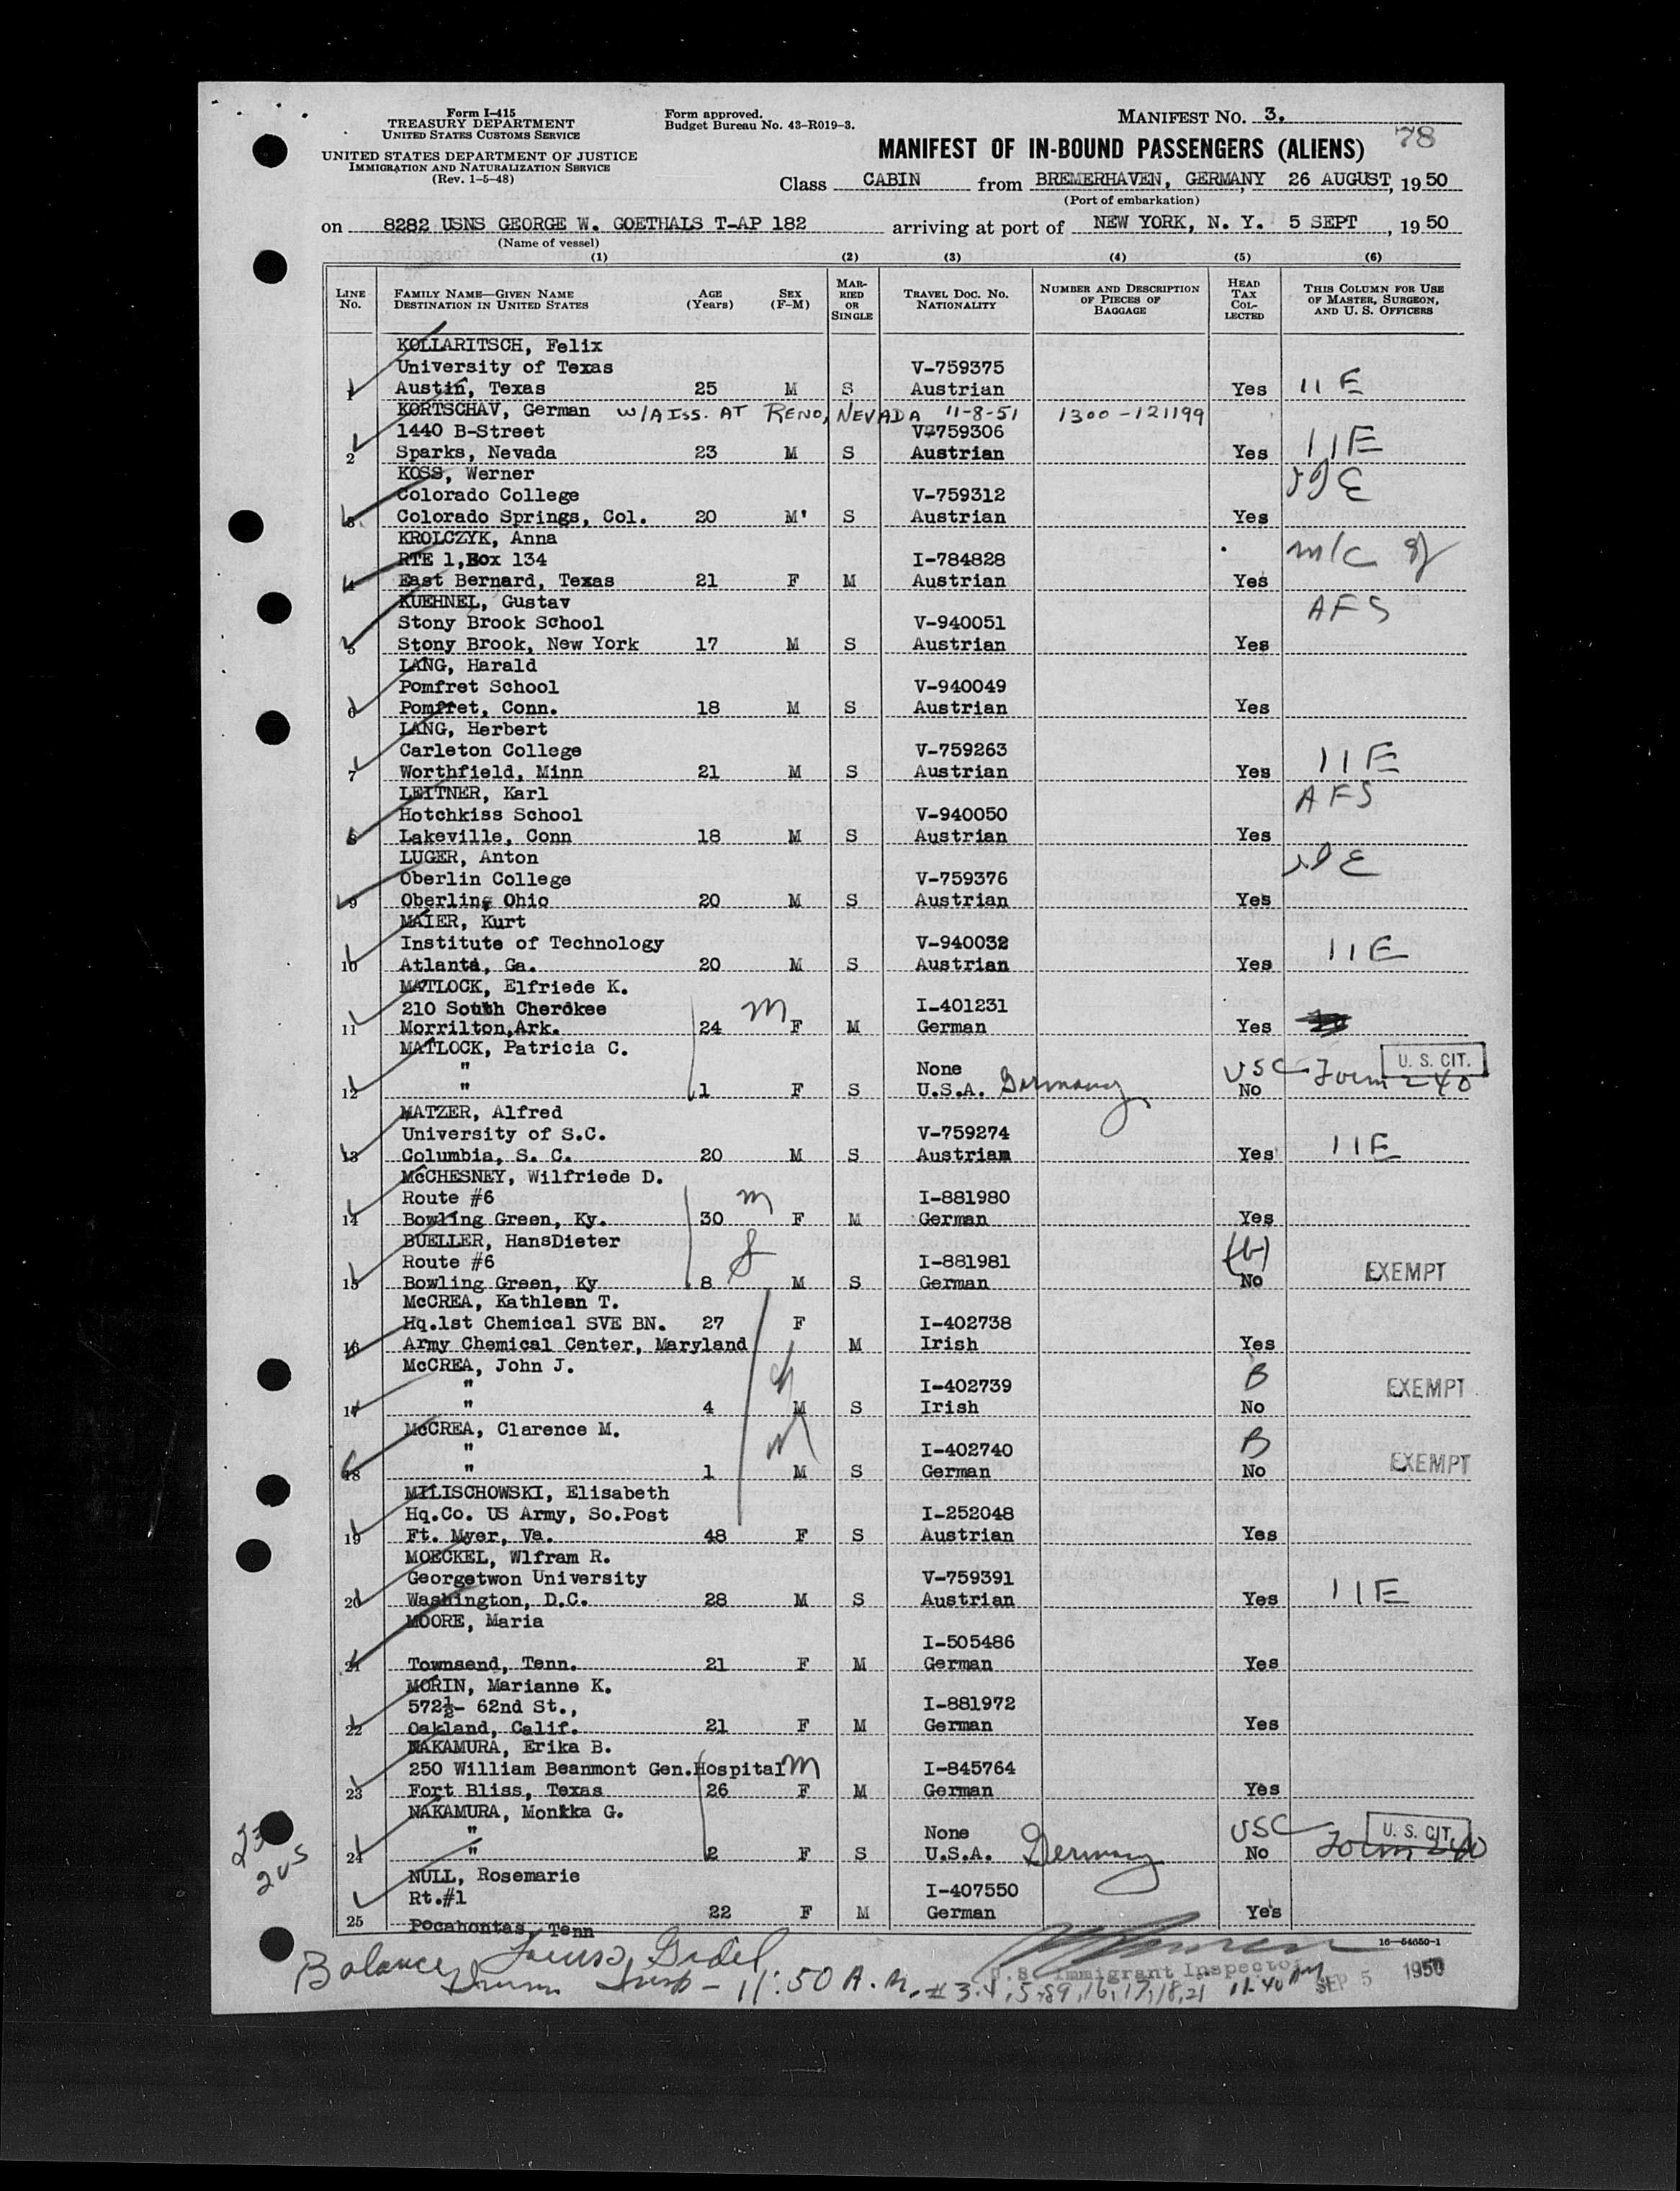 Form I-415
TREASURY DEPARTMENT
UNITED STATES CUSTOMS SERVICE
UNITED STATES DEPARTMENT OF JUSTICE
IMMIGRATION AND NATURALIZATION SERVICE
(Rev. 1-5-48)
Form approved.
Budget Bureau No. 43-R019-3.
MANIFEST NO. 3.
78
MANIFEST OF IN-BOUND PASSENGERS (ALIENS)
Class CABIN from BREMERHAVEN, GERMANY, 26 AUGUST, 1950
(Port of embarkation)
on 8282 USNS GEORGE W. GOETHALS T-AP 182 arriving at port of NEW YORK, N. Y. 5 SEPT, 1950
(Name of vessel)
(1) (2) (3) (4) (5) (6)
LINE NO. FAMILY NAME—GIVEN NAME DESTINATION IN UNITED STATES AGE (YEARS) SEX (F-M) MARRIED OR SINGLE TRAVEL DOC. NO. NATIONALITY NUMBER AND DESCRIPTION OF PIECES OF BAGGAGE HEAD TAX COLLECTED THIS COLUMN FOR USE OF MASTER, SURGEON, AND U. S. OFFICERS
KOLLARITSCH, Felix
University of Texas V-759375
1 Austin, Texas 25 M S Austrian Yes 11 E
KORTSCHAV, German W/A ISS. AT RENO, NEVADA 11-8-51 1300-121199
1440 B-Street V-759306
2 Sparks, Nevada 23 M S Austrian Yes 11E
KOSS, Werner
Colorado College V-759312
3 Colorado Springs, Col. 20 M' S Austrian Yes
KROLCZYK, Anna m/c
RTE 1, Box 134 I-784828
4 East Bernard, Texas 21 F M Austrian Yes
KUEHNEL, Gustav AFS
Stony Brook School V-940051
5 Stony Brook, New York 17 M S Austrian Yes
LANG, Harald
Pomfret School V-940049
6 Pomfret, Conn. 18 M S Austrian Yes
LANG, Herbert
Carleton College V-759263
7 Worthfield, Minn 21 M S Austrian Yes 11E
LEITNER, Karl AFS
Hotchkiss School V-940050
8 Lakeville, Conn 18 M S Austrian Yes
LUGER, Anton
Oberlin College V-759376
9 Oberling Ohio 20 M S Austrian Yes
MAIER, Kurt
Institute of Technology V-940032
10 Atlanta, Ga. 20 M S Austrian Yes 11E
MATLOCK, Elfriede K.
210 South Cherokee m I-401231
11 Morrilton,Ark. 24 F M German Yes
MATLOCK, Patricia C. U. S. CIT.
" None USC Form 240
12 " 1 F S U.S.A. Germany No
MATZER, Alfred
University of S.C. V-759274
13 Columbia, S. C. 20 M S Austrian Yes 11E
McCHESNEY, Wilfriede D.
Route #6 m I-881980
14 Bowling Green, Ky. 30 F M German Yes
BUELLER, HansDieter
Route #6 I-881981 (b)
15 Bowling Green, Ky 8 M S German No EXEMPT
McCREA, Kathleen T.
Hq.1st Chemical SVE BN. 27 F I-402738
16 Army Chemical Center, Maryland M Irish Yes
McCREA, John J.
" I-402739 B EXEMPT
17 " 4 M S Irish No
McCREA, Clarence M.
" I-402740 B EXEMPT
18 " 1 M S German No
MILISCHOWSKI, Elisabeth
Hq.Co. US Army, So.Post I-252048
19 Ft. Myer, Va. 48 F S Austrian Yes
MOECKEL, Wlfram R.
Georgetwon University V-759391
20 Washington, D.C. 28 M S Austrian Yes 11E
MOORE, Maria
I-505486
21 Townsend, Tenn. 21 F M German Yes
MORIN, Marianne K.
572½- 62nd St., I-881972
22 Oakland, Calif. 21 F M German Yes
NAKAMURA, Erika B.
250 William Beanmont Gen.Hospital m I-845764
23 Fort Bliss, Texas 26 F M German Yes
NAKAMURA, Monika G.
" None USC U. S. CIT.
24 " 2 F S U.S.A. Germany No Form 240
NULL, Rosemarie
Rt.#1 I-407550
25 Pocahontas, Tenn 22 F M German Yes
23
2 US
16—54650-1
Balance
U.S. Immigrant Inspector
Insp - 11:50 A.M. # 3.4,5,89,16,17,18,21 11.40 AM SEP 5 1950